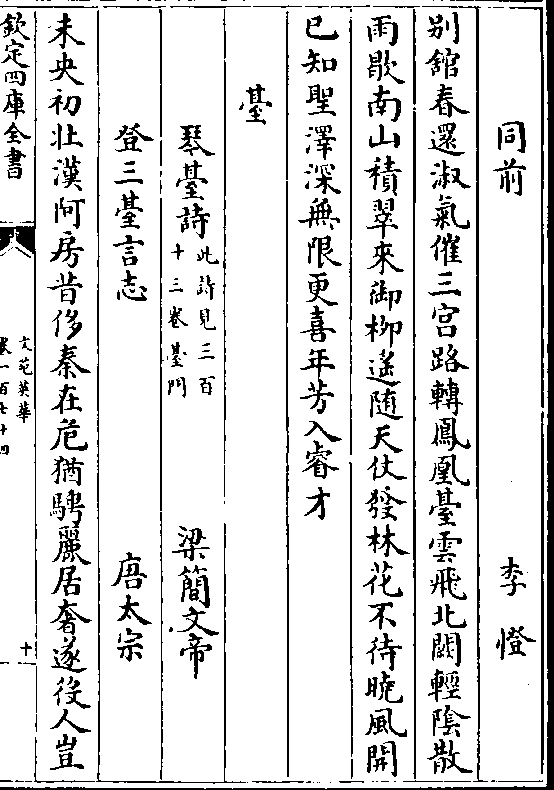 同前 李憕
別舘春還淑氣催三宫路轉鳳凰臺雲飛北闕輕隂散
雨歇南山積翠來御栁遙随天仗發林花不待曉風開
已知聖澤深無限更喜年芳入睿才
臺
琴臺詩 此詩見三百十三卷臺門 梁簡文帝
登三臺言志 唐太宗
未央初壯漢阿房昔侈秦在危猶騁麗居奢遂役人豈
欽定四庫全書
文苑英華
卷一百七十四
十